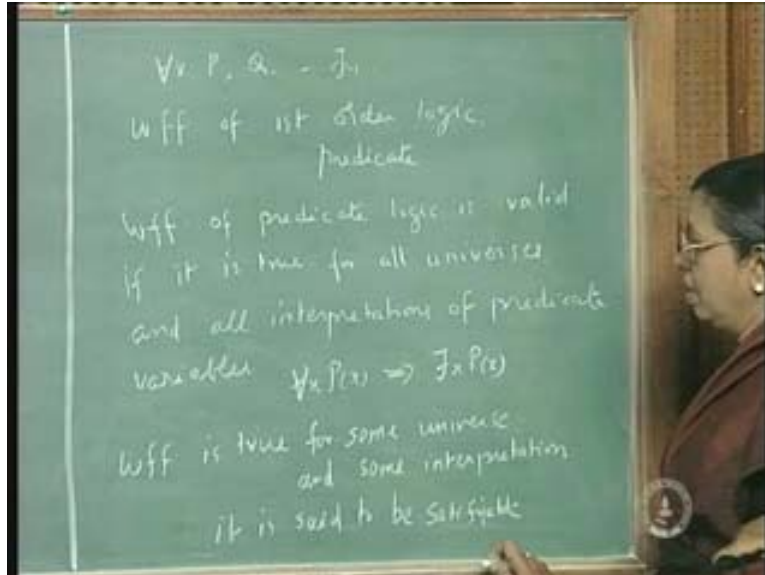 ∀x P, Q. - ∃
wff of ist order logic.
predicate
wff of predicate logic is valid
if it is true for all universes
and all interpretations of predicate
variables ∀x P(x) ⇒ ∃x P(x)
wff is true for some universe
and some interpretation
it is said to be satisfiable